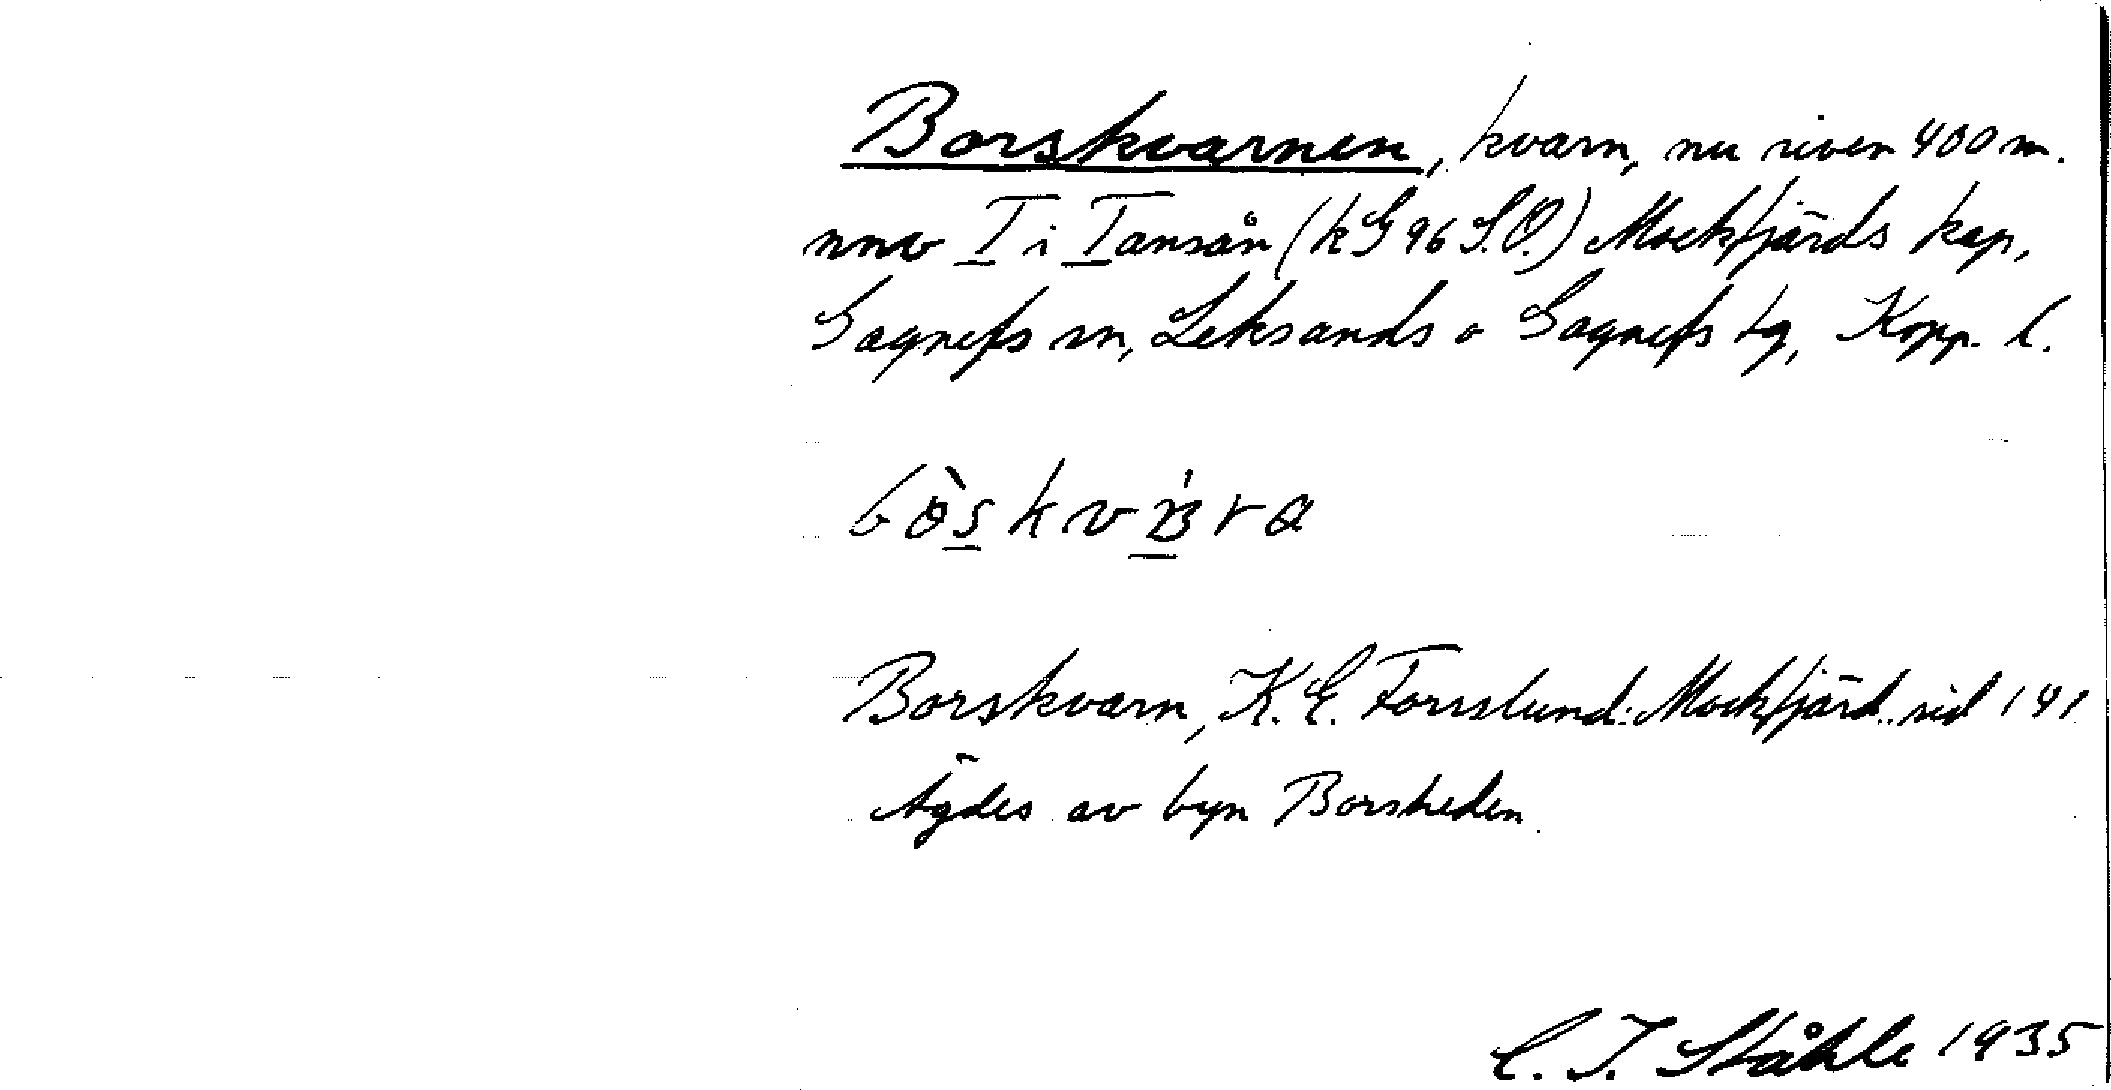 Borskvarnen, kvarn, nu riven 400 m.
nnv T i Tansån (k G 96 S.O.) Mockfjärds kap,
Gagnefs sn, Leksands o Gagnefs tg, Kopp. l.
Borskvarn, K. E. Forslund: Mockfjärd.. sid 141
Ägdes av byn Borsheden
C. I. Ståhle 1935